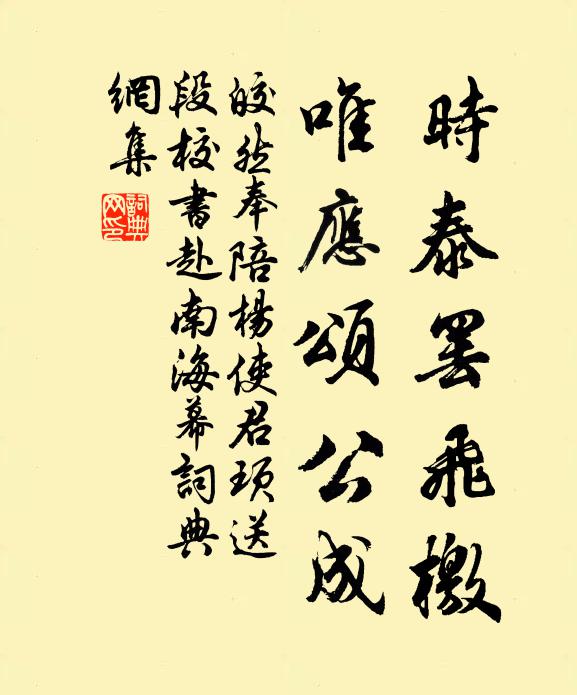 時泰罢飛檄
唯應頌公成
皎然奉陪楊使君頊送
段校書赴南海幕詞典
網集
詞典
网印